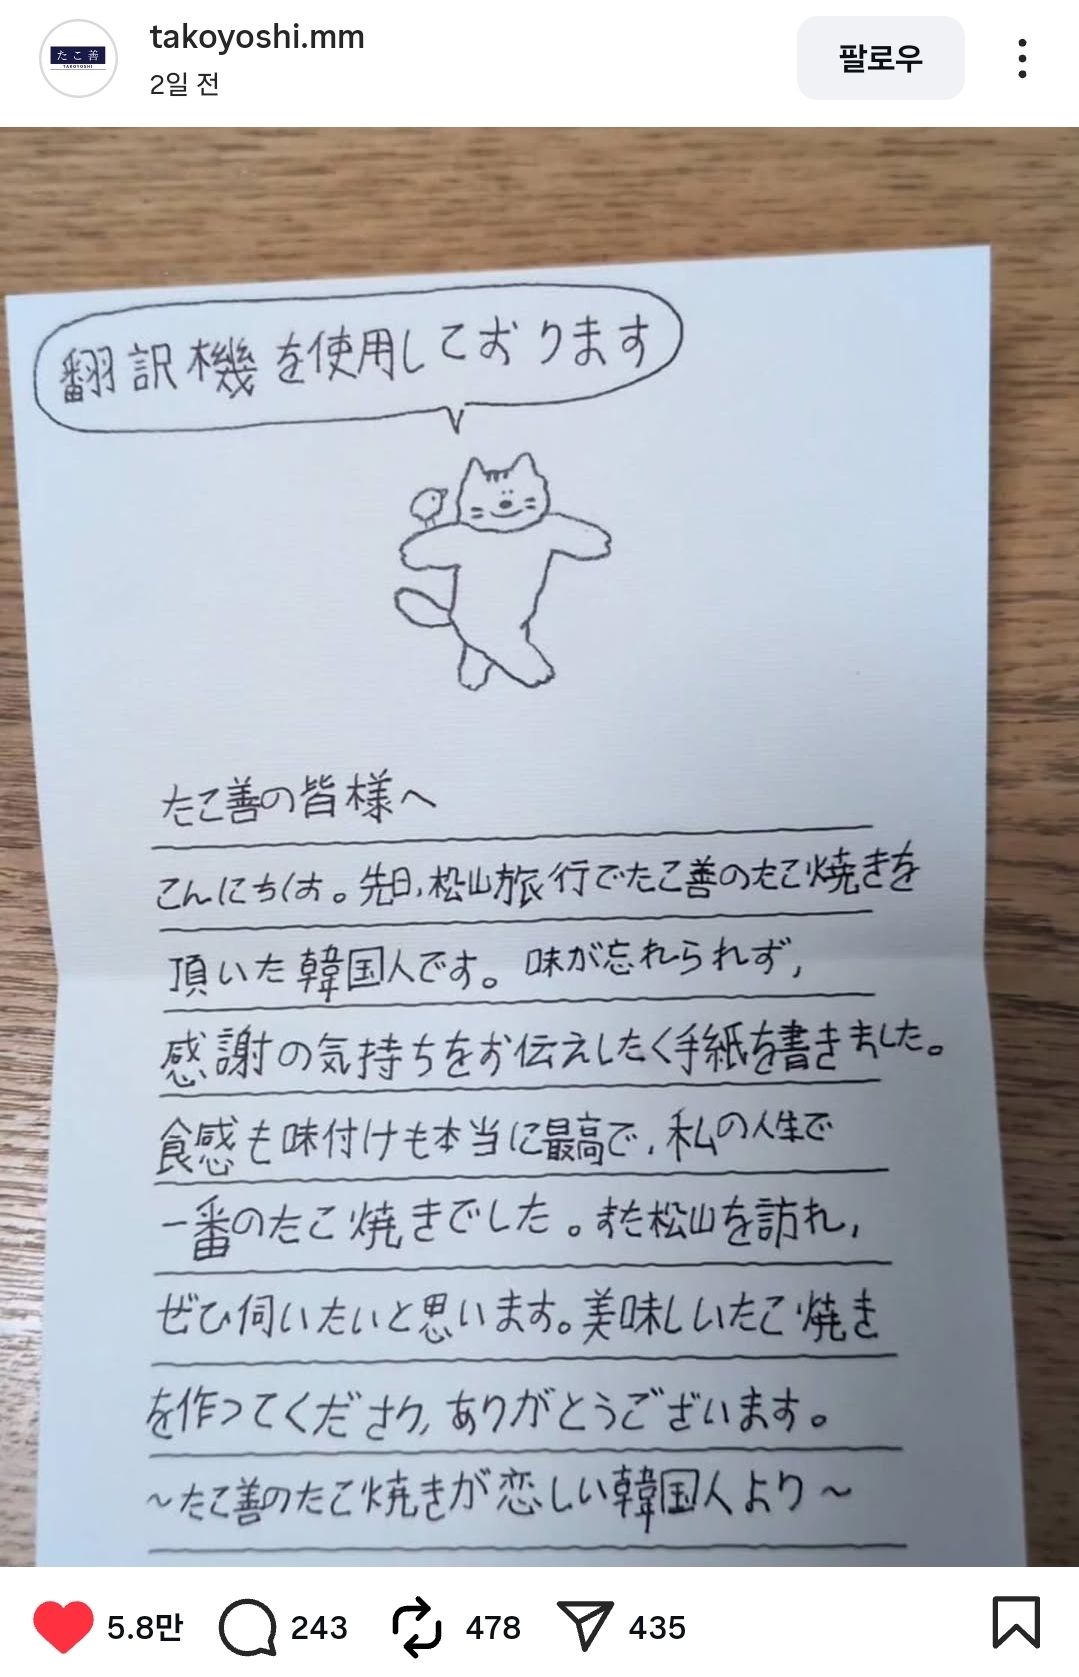 たこ善
TAKOYOSHI
takoyoshi.mm
2일 전
팔로우
翻訳機を使用しております
たこ善の皆様へ
こんにちは。先日、松山旅行でたこ善のたこ焼きを
頂いた韓国人です。味が忘れられず、
感謝の気持ちをお伝えしたく手紙を書きました。
食感も味付けも本当に最高で、私の人生で
一番のたこ焼きでした。また松山を訪れ、
ぜひ伺いたいと思います。美味しいたこ焼き
を作ってくださり、ありがとうございます。
~たこ善のたこ焼きが恋しい韓国人より~
5.8만
243
478
435